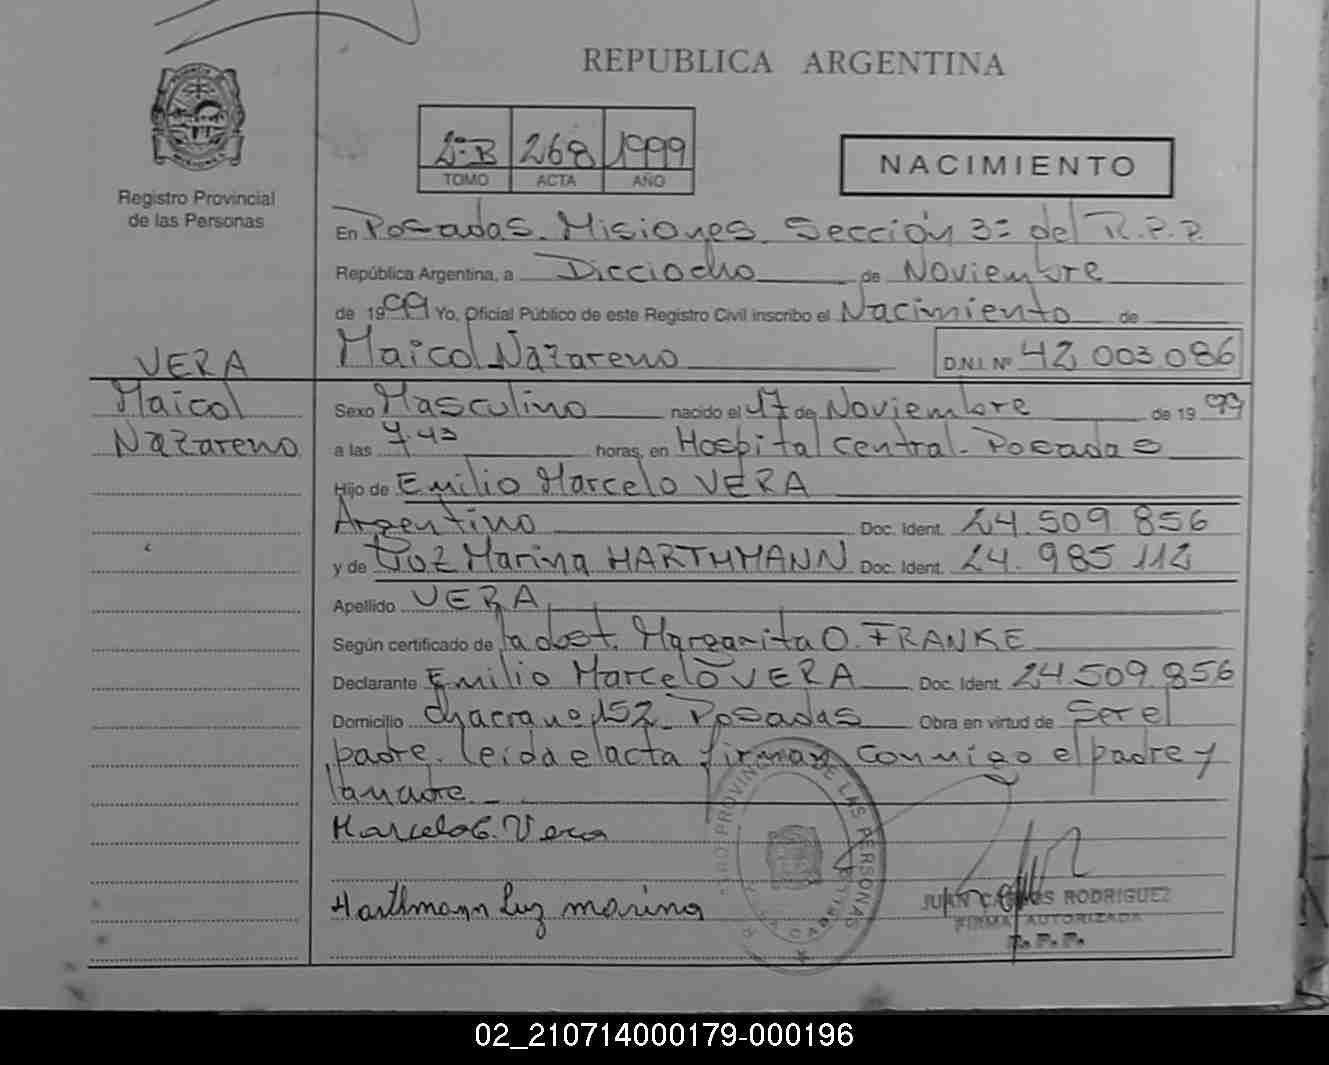 REPUBLICA ARGENTINA
2º B 268 1999
TOMO ACTA AÑO
NACIMIENTO
Registro Provincial
de las Personas
En Posadas. Misiones. Sección 3º del R.P.P.
República Argentina, a Dieciocho de Noviembre
de 1999 Yo, Oficial Público de este Registro Civil inscribo el Nacimiento de
Maicol Nazareno D.N.I. Nº 42 003 086
VERA
Maicol
Nazareno
Sexo Masculino nacido el 17 de Noviembre de 1999
a las 7.43 horas, en Hospital Central. Posadas
Hijo de Emilio Marcelo VERA
Argentino Doc. Ident. 24.509.856
y de Luz Marina HARTHMANN Doc. Ident. 24.985.112
Apellido VERA
Según certificado de la obst. Margarita O. FRANKE
Declarante Emilio Marcelo VERA Doc. Ident 24.509.856
Domicilio chacra nº 152 Posadas Obra en virtud de Ser el
padre. leida el acta firman conmigo el padre y
la madre.
Marcelo E. Vera
Harthmann Luz marina
JUAN CARLOS RODRIGUEZ
FIRMA AUTORIZADA
DE LAS PERSONAS
02_210714000179-000196